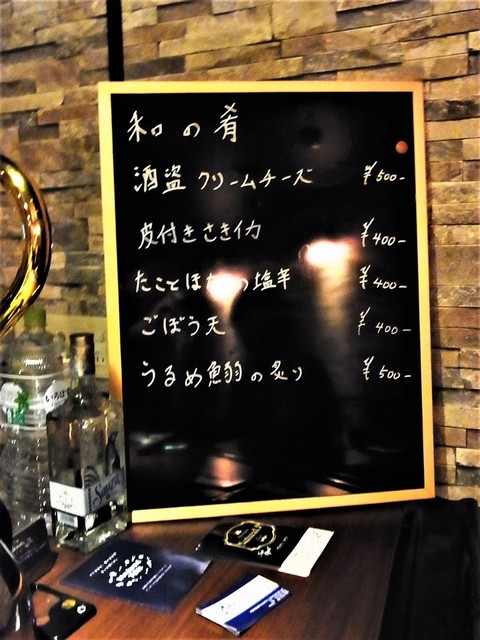 和の肴
酒盗 クリームチーズ ¥500-
皮付きさきイカ ¥400-
たことほ の塩辛 ¥400-
ごぼう天 ¥400-
うるめ鰯の炙り ¥500-